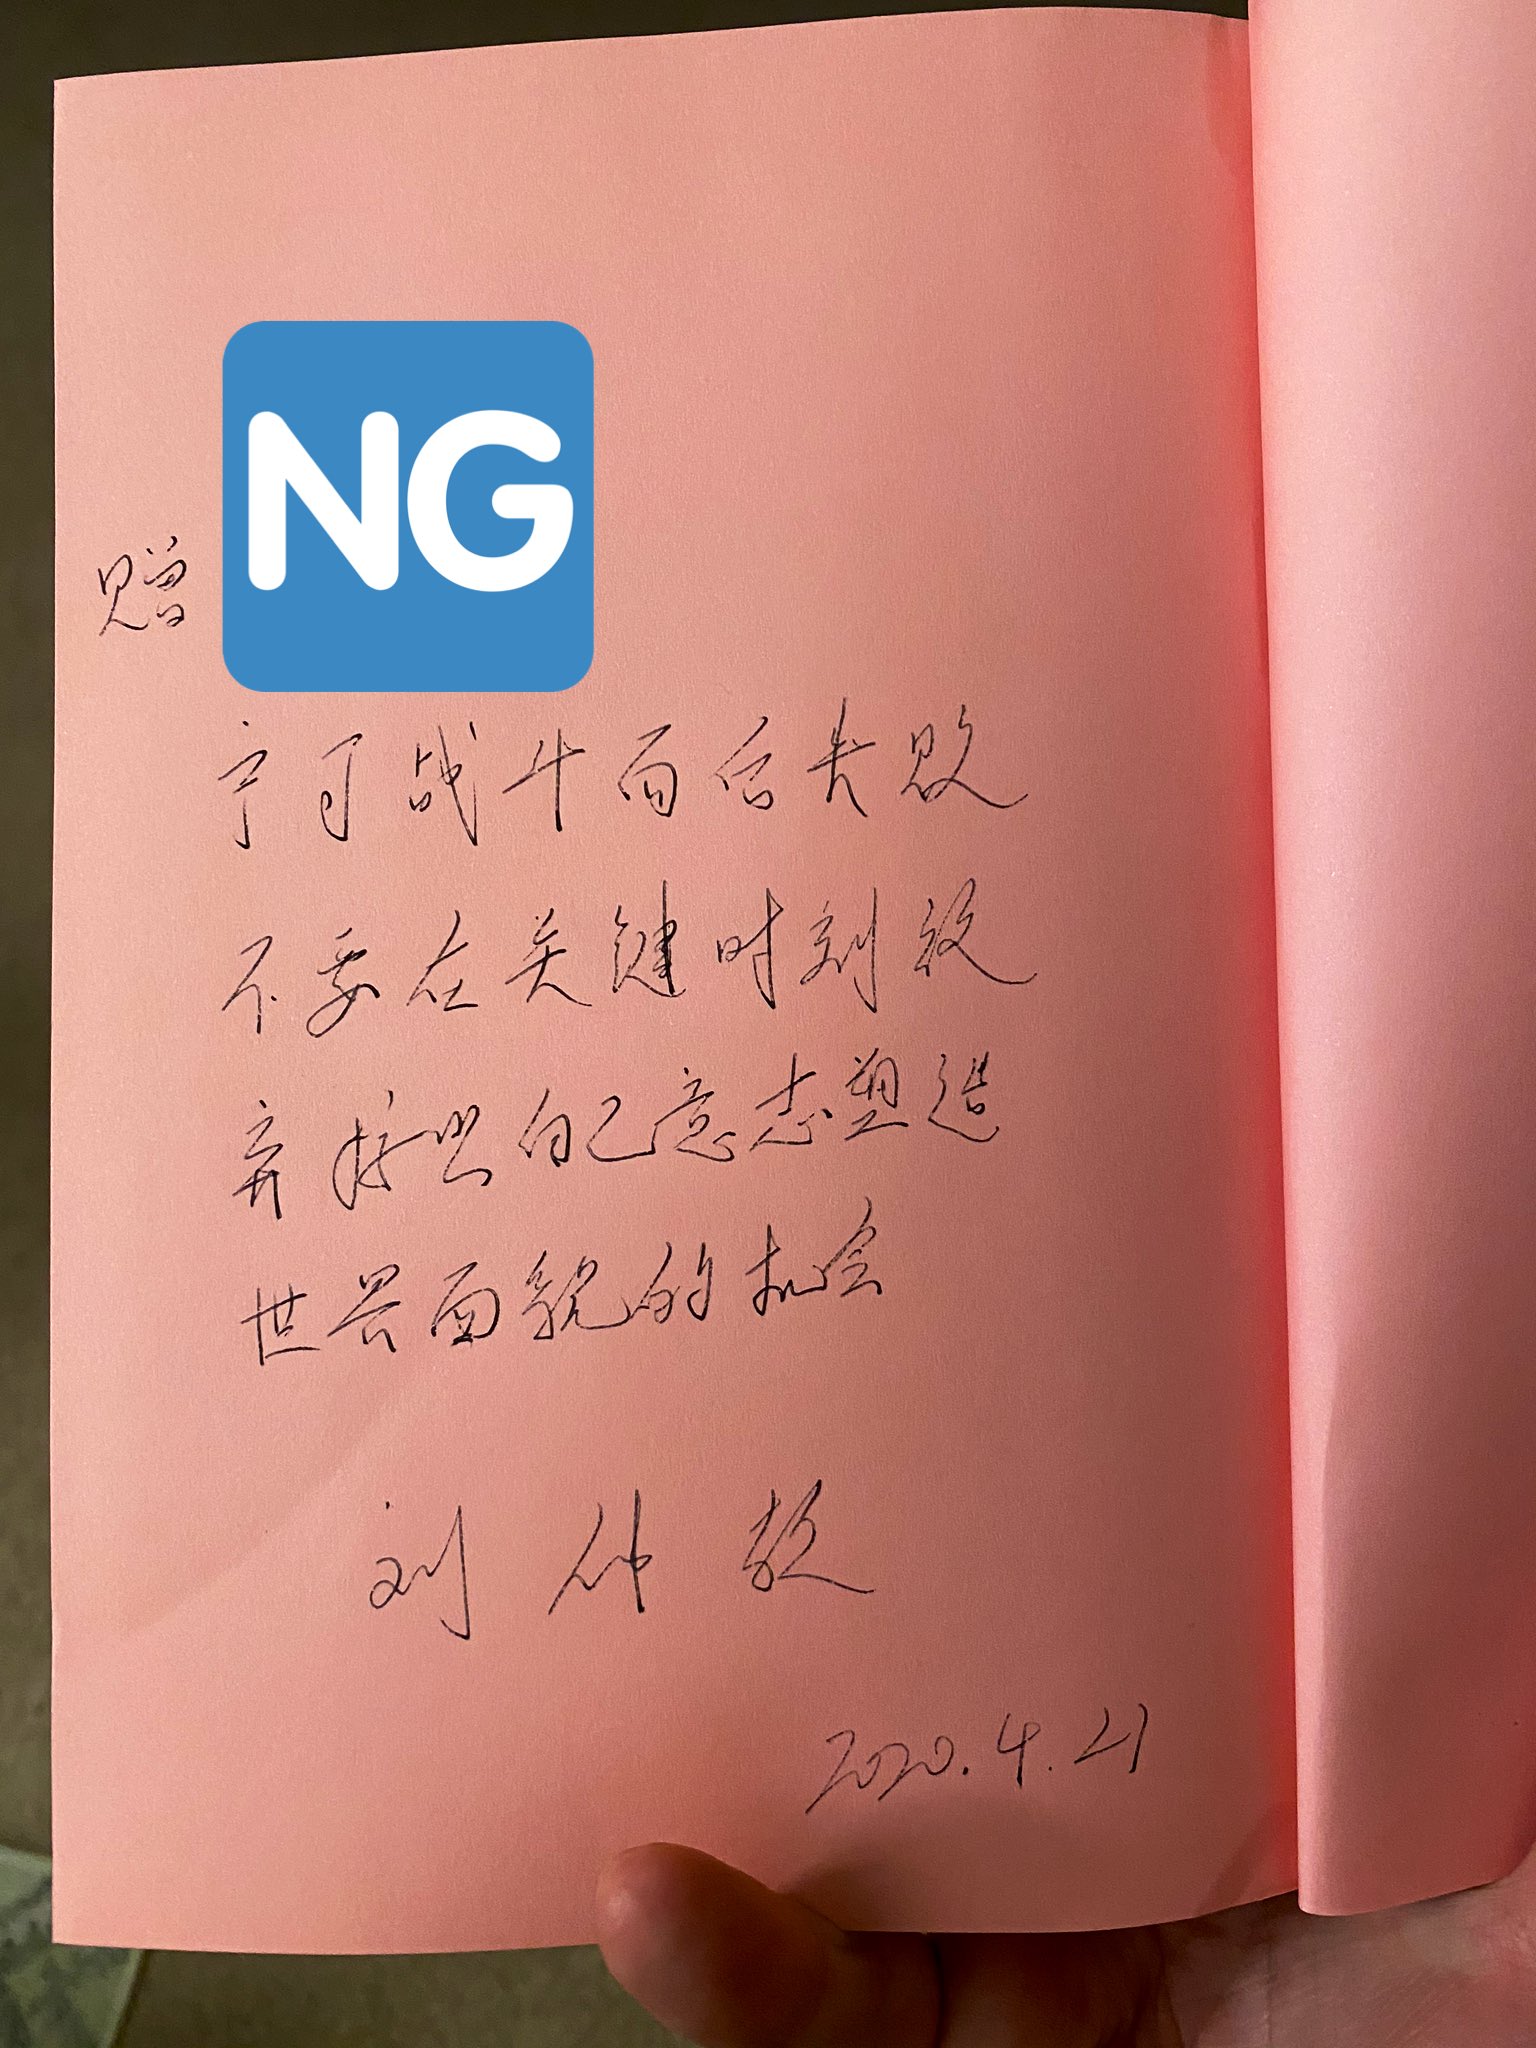 赠 NG
宁可战斗而后失败
不要在关键时刻放
弃按照自己意志塑造
世界面貌的机会
刘仲敬
2020.4.21